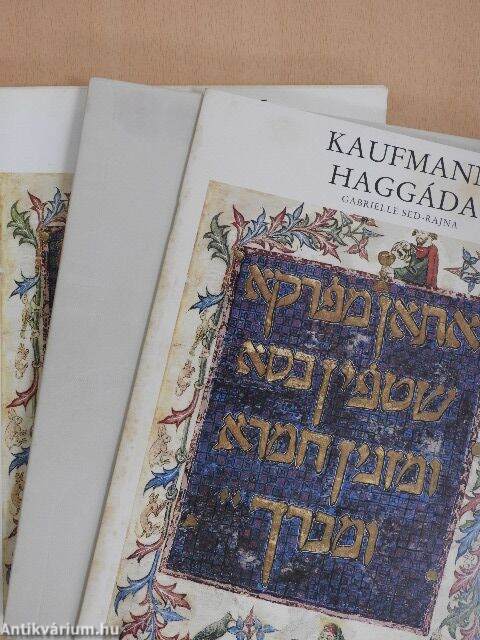 KAUFMANN
HAGGÁDA
GABRIELLE SED-RAJNA
אתאן מפרקא
שטפין כסא
ומזגין חמרא
ומברך
Antikvárium.hu